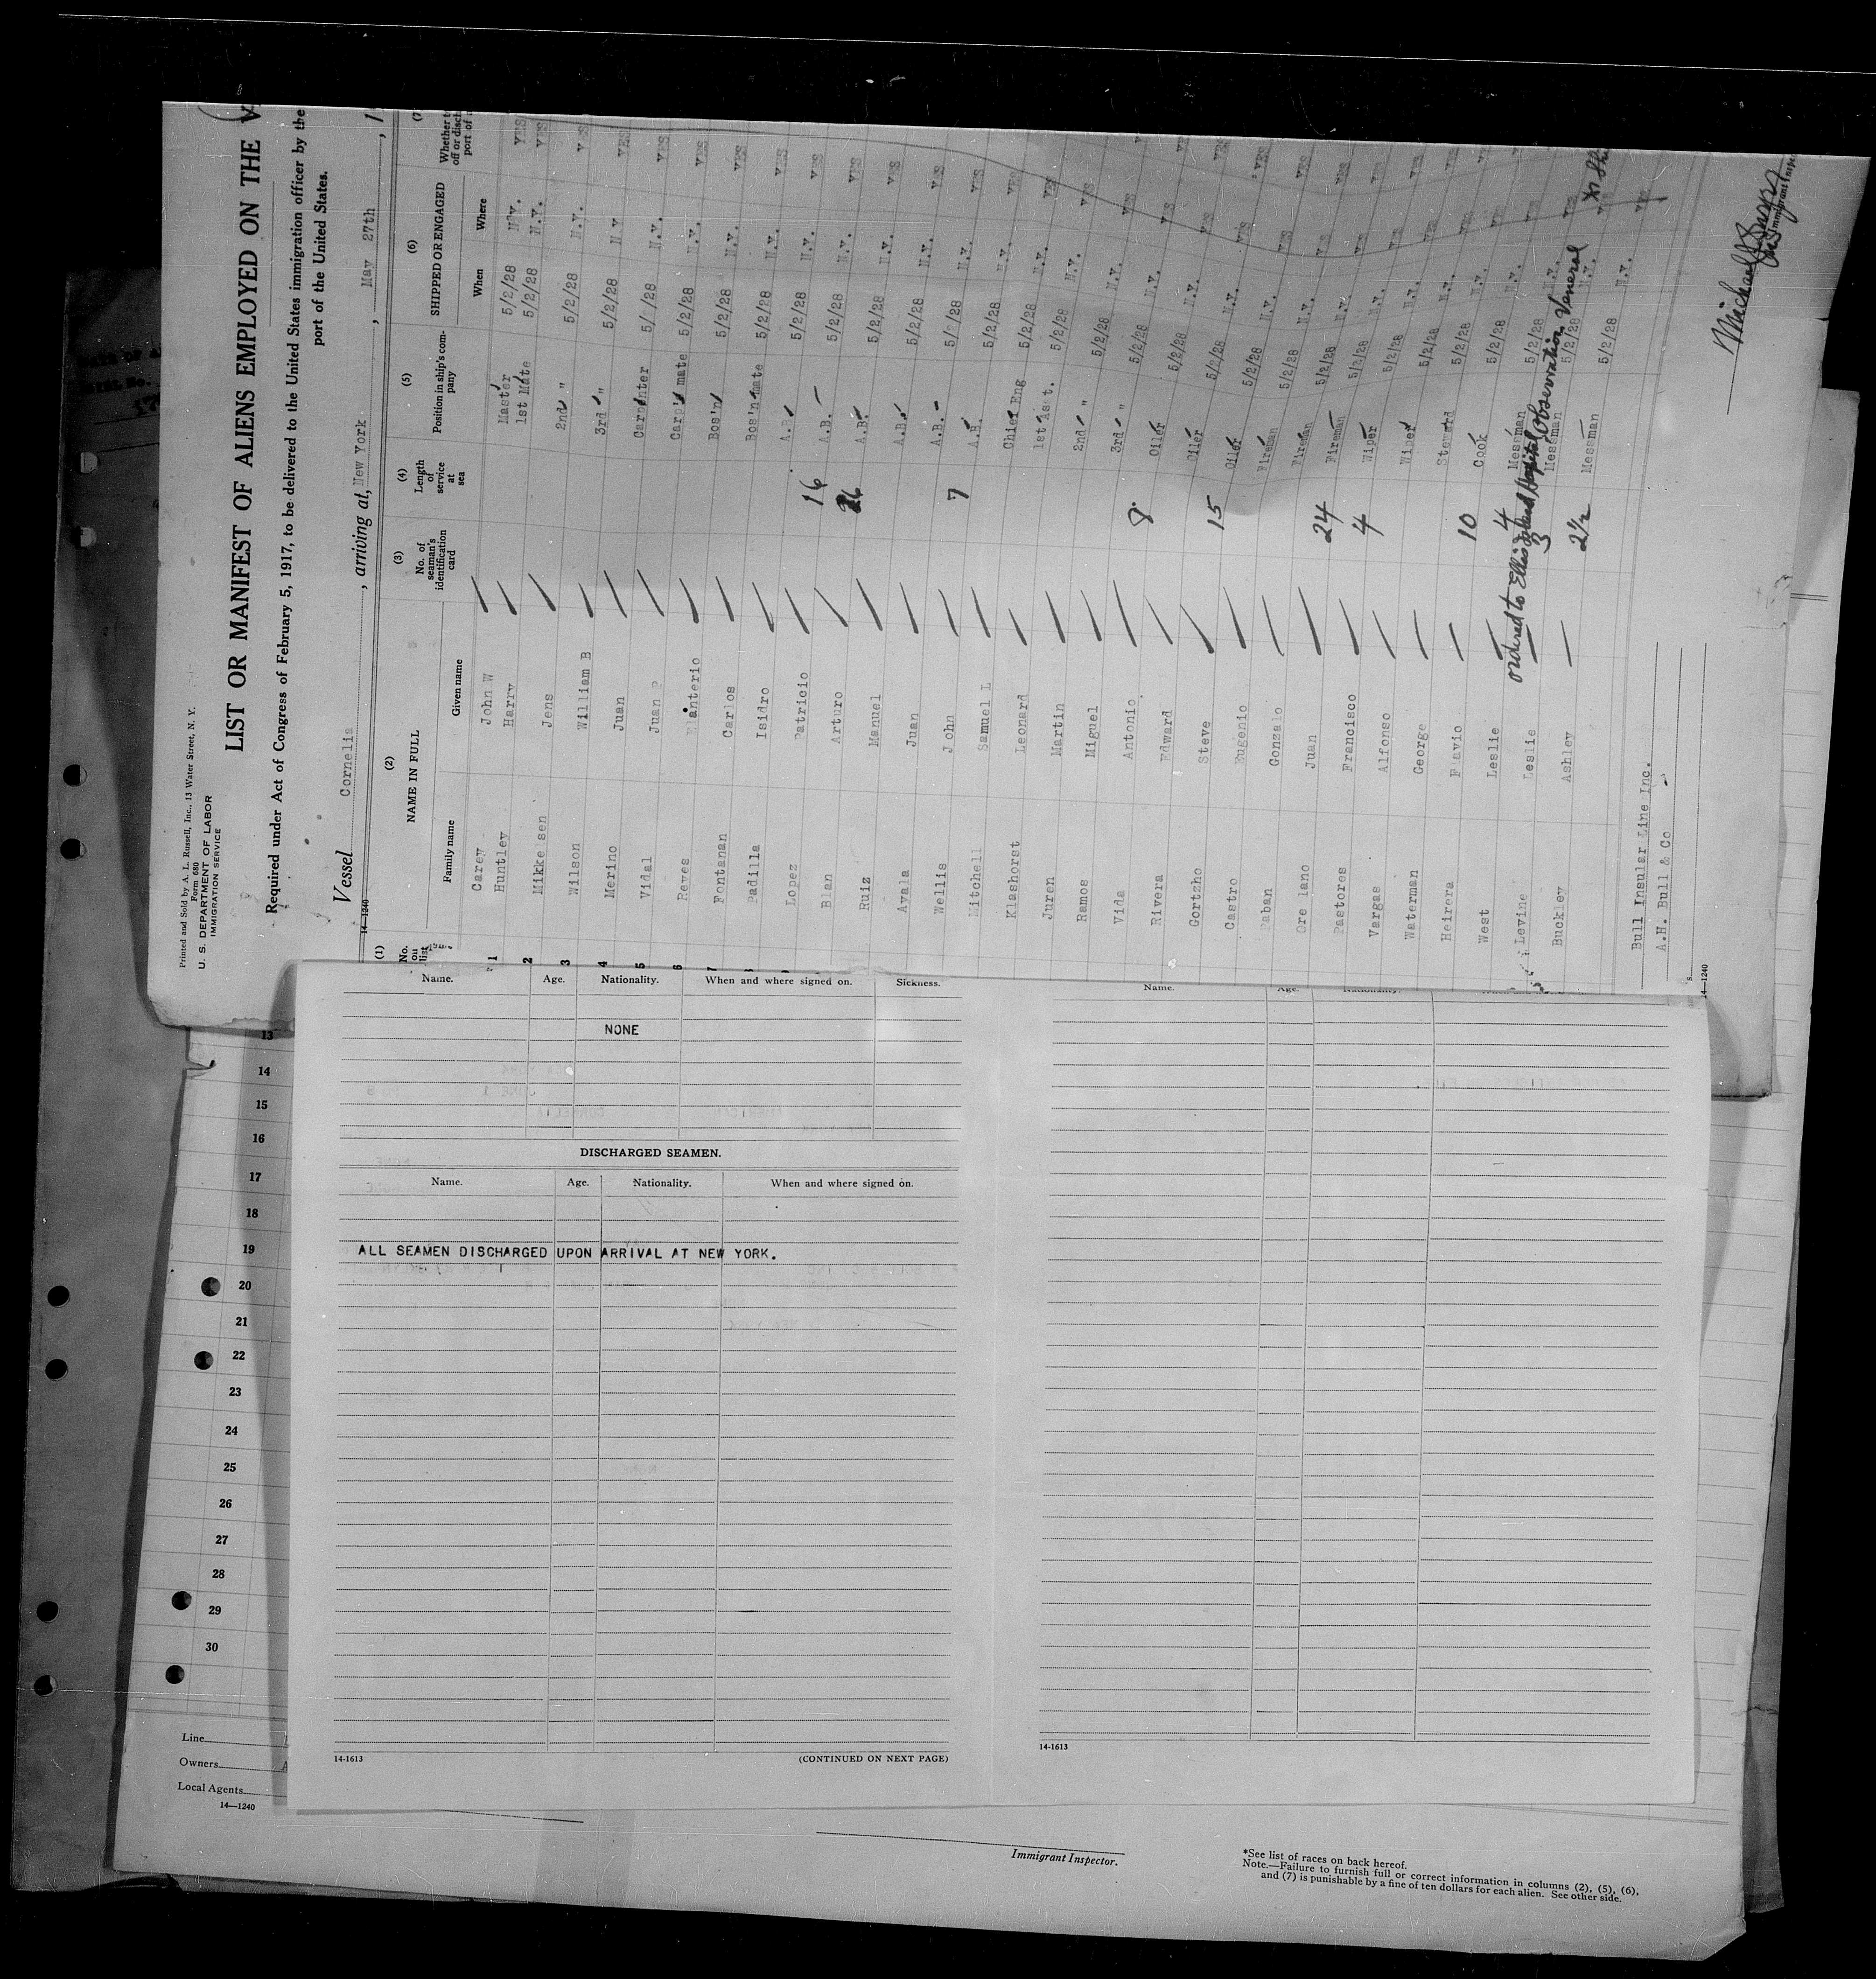 Printed and Sold by A. L. Russell, Inc., 13 Water Street, N. Y.
Form 680
U. S. DEPARTMENT OF LABOR
IMMIGRATION SERVICE
LIST OR MANIFEST OF ALIENS EMPLOYED ON THE
Required under Act of Congress of February 5, 1917, to be delivered to the United States immigration officer by the
port of the United States.
Vessel Cornelia , arriving at, New York , May 27th , 1
14—1240
(1) (2) (3) (4) (5) (6) (7
No. on list NAME IN FULL No. of seaman's identification card Length of service at sea Position in ship's company SHIPPED OR ENGAGED Whether t off or disch port of
Family name Given name When Where
Carey John W Master 5/2/28 N.Y. YES
1 Huntley Harry 1st Mate 5/2/28 N.Y. YES
2 Mikkelsen Jens 2nd " 5/2/28 N.Y. YES
3 Wilson William B 3rd " 5/2/28 N.Y. YES
4 Merino Juan Carpenter 5/2/28 N.Y. YES
5 Vidal Juan P Carp's mate 5/2/28 N.Y. YES
6 Reyes Bos'n 5/2/28 N.Y. YES
7 Fontanan Carlos Bos'n mate 5/2/28 N.Y. YES
8 Padilla Isidro A.B. 5/2/28 N.Y. YES
Lopez Patricio 16 A.B. 5/2/28 N.Y. YES
Blan Arturo 26 A.B. 5/2/28 N.Y. YES
Ruiz Manuel A.B. 5/2/28 N.Y. YES
Ayala Juan A.B. 5/2/28 N.Y. YES
Wellis John 7 A.B. 5/2/28 N.Y. YES
Mitchell Samuel L Chief Eng 5/2/28 N.Y. YES
Klashorst Leonard 1st Asst. 5/2/28 N.Y. YES
Juren Martin 2nd " 5/2/28 N.Y. YES
Ramos Miguel 3rd " 5/2/28 N.Y. YES
Vida Antonio 8 Oiler 5/2/28 N.Y. YES
Rivera Edward Oiler 5/2/28 N.Y. YES
Gortzho Steve 15 Oiler 5/2/28 N.Y. YES
Castro Eugenio Fireman 5/2/28 N.Y. YES
Gonzalo Fireman 5/2/28 N.Y. YES
Juan 24 Fireman 5/2/28 N.Y. YES
Pastores Francisco 4 Wiper 5/2/28 N.Y. YES
Vargas Alfonso Wiper 5/2/28 N.Y. YES
Waterman George Steward 5/2/28 N.Y. YES
Heirera Flavio 10 Cook 5/2/28 N.Y. YES
West Leslie 4 Messman 5/2/28 N.Y. YES
ordered to Ellis Island Hospital Observation Veneral
Levine Leslie 3 Messman 5/2/28 N.Y. YES
Buckley Ashley 2½ Messman 5/2/28 N.Y. YES
Bull Insular Line Inc.
A.H. Bull & Co
14—1240
Immigrant Insp
Name. Age. Nationality. When and where signed on. Sickness.
NONE
DISCHARGED SEAMEN.
Name. Age. Nationality. When and where signed on.
ALL SEAMEN DISCHARGED UPON ARRIVAL AT NEW YORK.
14-1613 (CONTINUED ON NEXT PAGE)
Name. Age. Nationality.
14-1613
13
14
15
16
17
18
19
20
21
22
23
24
25
26
27
28
29
30
Line
Owners
Local Agents
14—1240
Immigrant Inspector.
*See list of races on back hereof.
Note.—Failure to furnish full or correct information in columns (2), (5), (6),
and (7) is punishable by a fine of ten dollars for each alien. See other side.